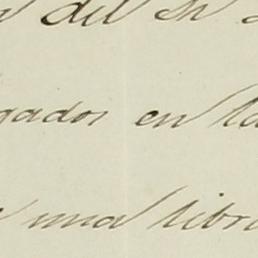 del Sr
gados en la
una libra